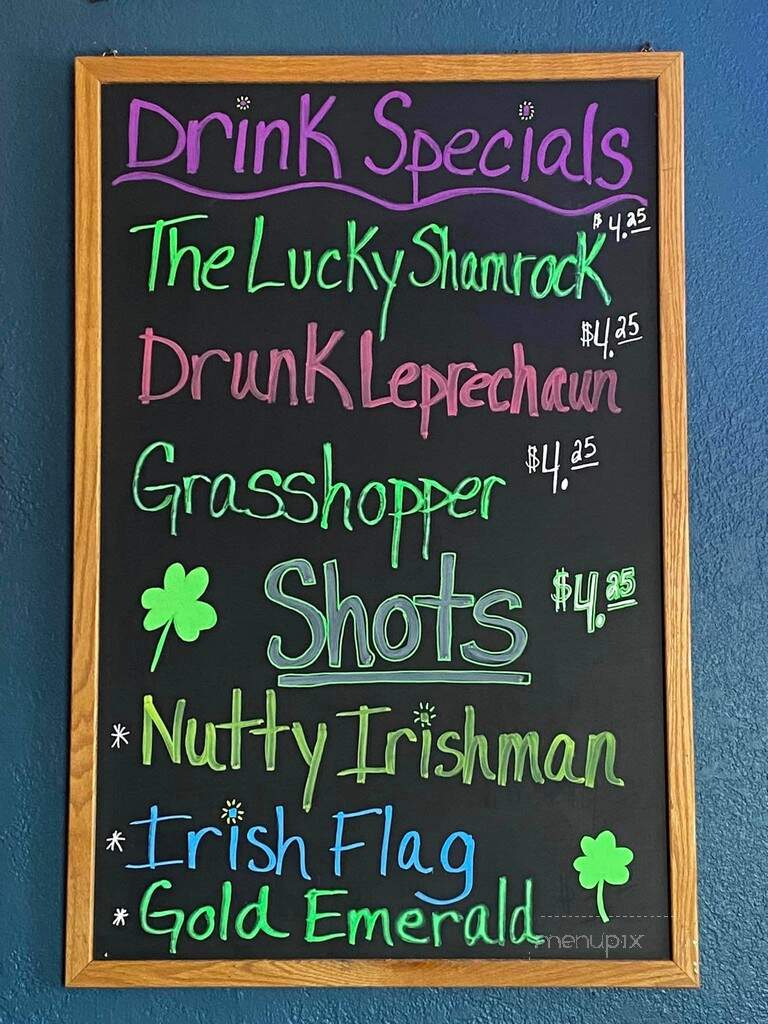 Drink Specials
The Lucky Shamrock $4.25
Drunk Leprechaun $4.25
Grasshopper $4.25
Shots $4.25
* Nutty Irishman
* Irish Flag
* Gold Emerald
menupix